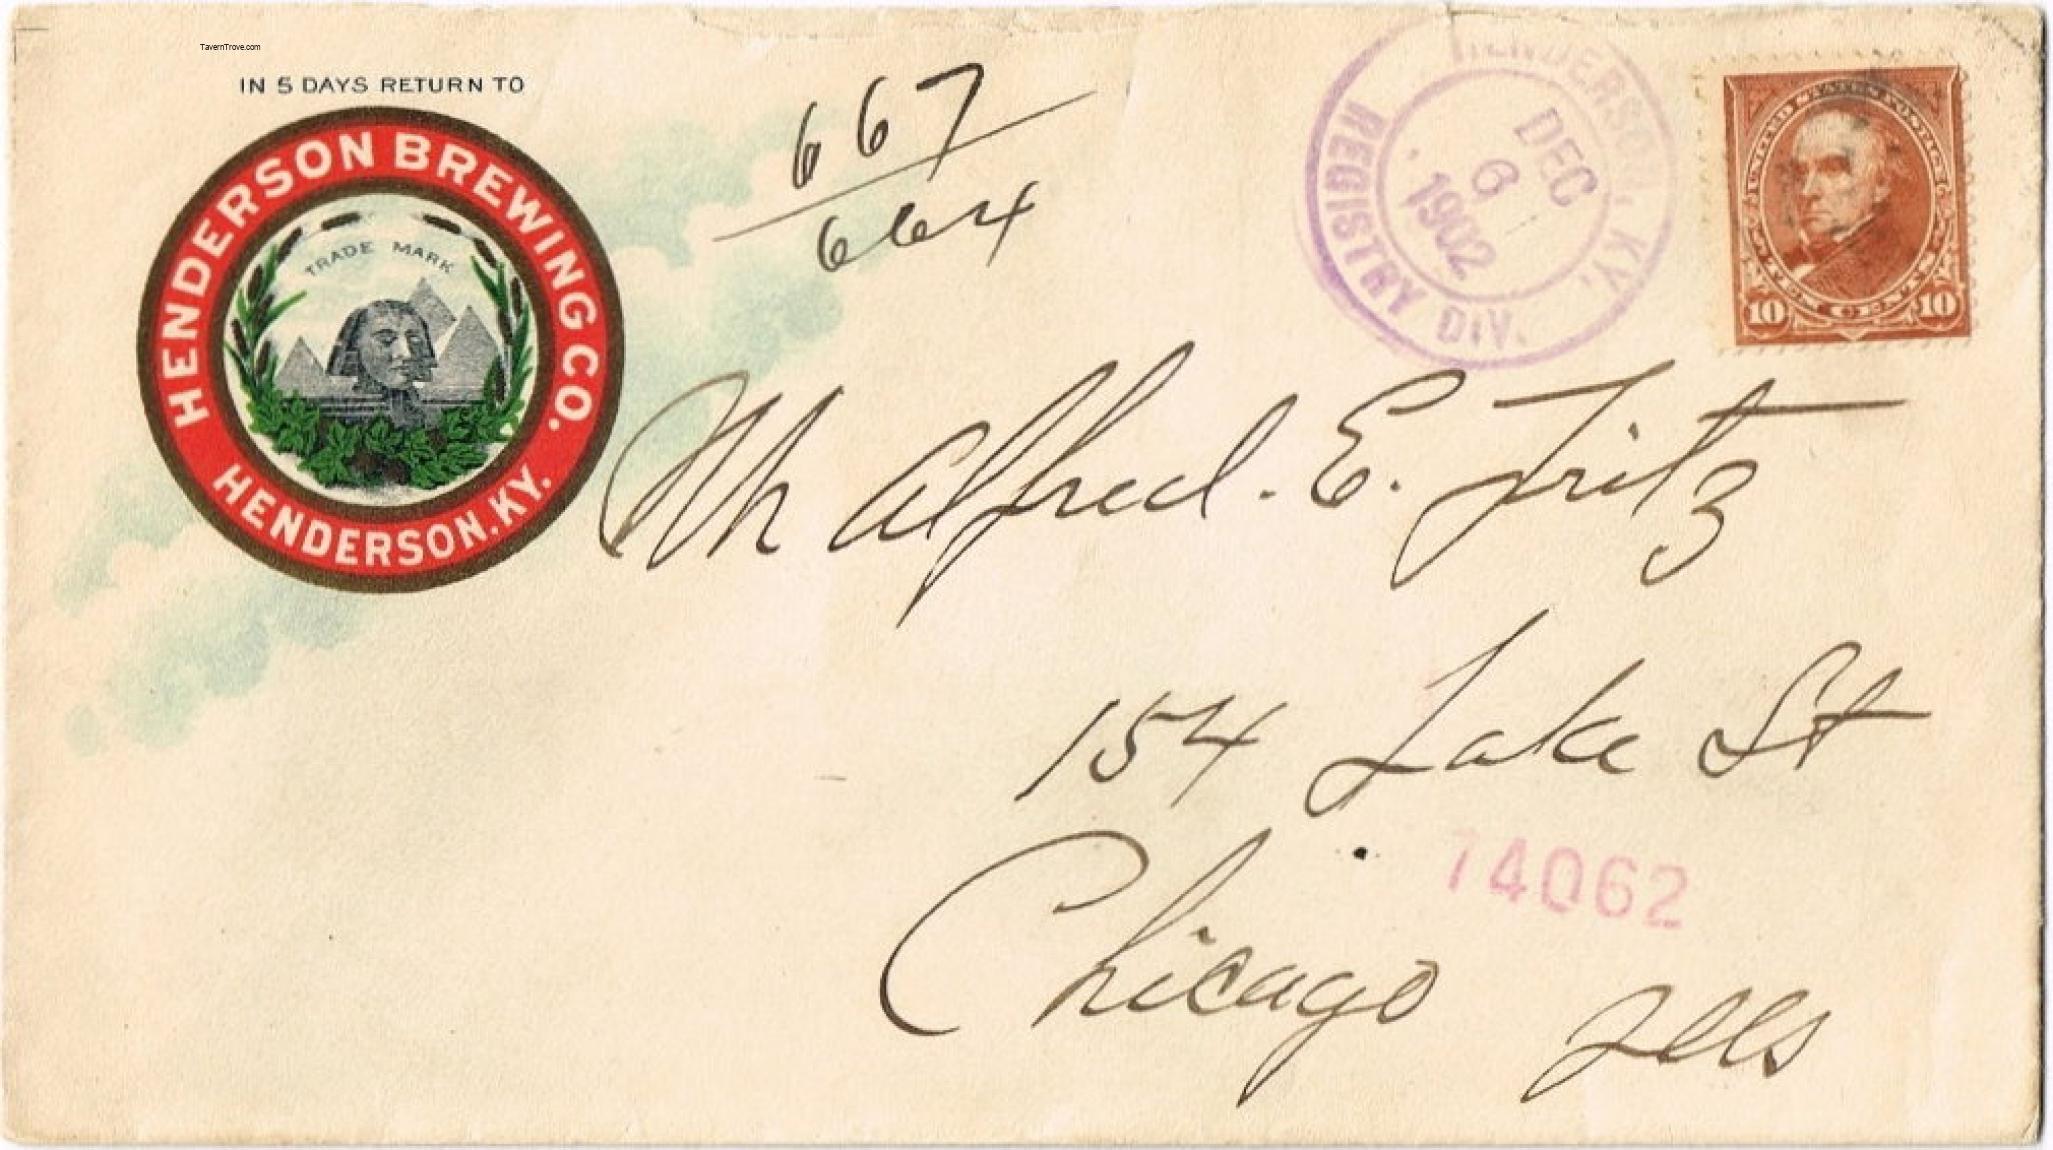 TavernTrove.com
IN 5 DAYS RETURN TO
HENDERSON BREWING CO.
HENDERSON, KY.
TRADE MARK
667
664
HENDERSON, KY.
REGISTRY DIV.
DEC
6
1902
UNITED STATES POSTAGE
10 TEN CENTS 10
Mr Alfred. E. Fritz
154 Lake St
74062
Chicago Ills